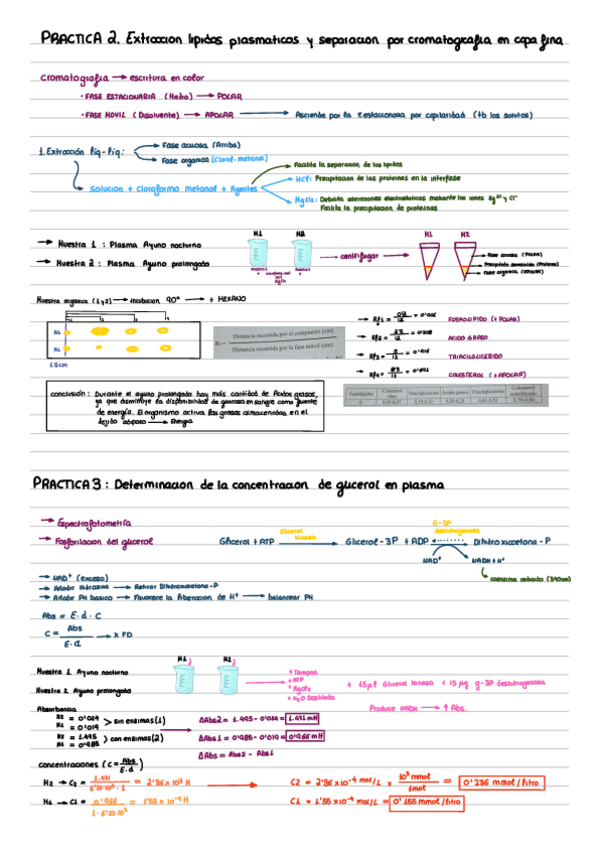 PRACTICA 2. Extraccion lipidos plasmaticos y separacion por cromatografia en capa fina
Cromatografia → escritura en color
· FASE ESTACIONARIA (Medio) → POLAR
· FASE MOVIL ( Disolvente) → APOLAR → Asciende por la estacionaria por capilaridad (tb los solutos)
1. Extracción líq-líq:
Fase acuosa (Arriba)
Fase organica (Clorof-metanol)
Solucion + Cloroformo metanol + Agentes
Facilita la separacion de los lipidos
HCl: Precipitacion de las proteinas en la interfase
MgCl2: Debilita interaciones electrostaticas mediante los iones Mg2+ y Cl-
Facilita la precipitacion de proteinas
→ Muestra 1 : Plasma Ayuno nocturno
→ Muestra 2 : Plasma Ayuno prolongado
M1 M2
centrifugar
M1 M2
Fase acuosa (Polar)
Precipitado
Fase organica (Apolar)
Muestra organica (1 y 2) → incubacion 90° → + HEXANO
1 2 3 4
1.5cm
Distancia recorrida por el compuesto (cm)
Distancia recorrida por la fase móvil (cm)
FOSFOLIPIDO (+ POLAR)
ACIDO GRASO
TRIACILGLICERIDO
COLESTEROL (+ APOLAR)
conclusión: Durante el ayuno prolongado hay más cantidad de Acidos grasos,
ya que disminuye la disponibilidad de glucosa en sangre como fuente
de energía. El organismo activa las grasas almacenadas en el
tejido adiposo → Energia
Fosfolípidos
PRACTICA 3 : Determinacion de la concentracion de glicerol en plasma
→ Espectrofotometría
→ Fosforilacion del glicerol
Glicerol + ATP → Glicerol - 3P + ADP
Glicerol
kinasa
G-3P
Deshidrogenasa
Dihidroxiacetona - P
NAD+ NADH + H+
coenzima reducida (340nm)
→ NAD+ (exceso)
→ Añadir hidrazina → Retirar Dihidroxiacetona-P
→ Añadir PH basico → Favorece la liberacion de H+ → balancear PH
Abs = E · d · C
C = Abs / E·d → x FD
M1 M2
Muestra 1. Ayuno nocturno
Muestra 2. Ayuno prolongado
+ Tampon
+ ATP
+ MgCl2
+ H2O Destilada
+ 15μl Glicerol kinasa + 15 μg g-3P deshidrogenasa
Produce NADH → ↑ Abs.
Absorbancia
M2 = 0'024
M1 = 0'019
> sin enzimas (1)
M2 = 1.495
M1 = 0'985
> con enzimas (2)
ΔAbs2 = 1.495 - 0'024 = 1.471 mM
ΔAbs1 = 0'985 - 0'019 = 0'966 mM
ΔAbs = Abs2 - Abs1
concentraciones (C = Abs / E.d)
M2 → C2 =
C2 = 2'36 x 10-4 mol/L x 10³ mmol / 1mol = 0'236 mmol/litro
M1 → C1 = 0'966 = 1'55 x 10-4 M
C1 = 1'55 x 10-4 mol/L = 0'155 mmol/litro